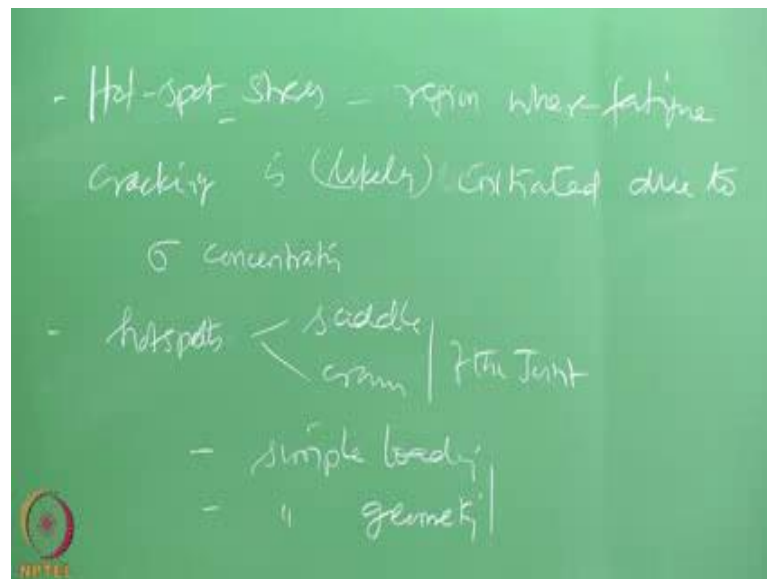 - Hot-spot stress - region where fatigue
cracking is (likely) initiated due to
σ concentrati
- hotspots < saddle
crown | of the Joint
- simple loading
- " geometry
NPTEL